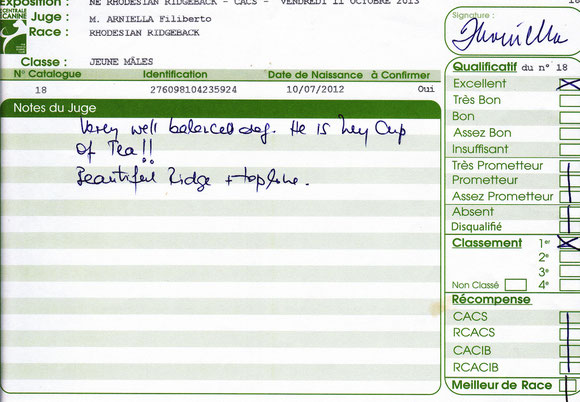 Exposition : NE RHODESIAN RIDGEBACK - CACS - VENDREDI 11 OCTOBRE 2013
CENTRALE CANINE
Juge : M. ARNIELLA Filiberto
Race : RHODESIAN RIDGEBACK
Classe : JEUNE MÂLES
N° Catalogue Identification Date de Naissance à Confirmer
18 276098104235924 10/07/2012 Oui
Notes du Juge
Very well balanced dog. He is my Cup
of Tea!!
Beautiful Ridge + topline.
18
Signature :
Qualificatif du n° 18
Excellent X
Très Bon
Bon
Assez Bon
Insuffisant
Très Prometteur
Prometteur
Assez Prometteur
Absent
Disqualifié
Classement 1er X
2e
3e
Non Classé 4e
Récompense
CACS
RCACS
CACIB
RCACIB
Meilleur de Race